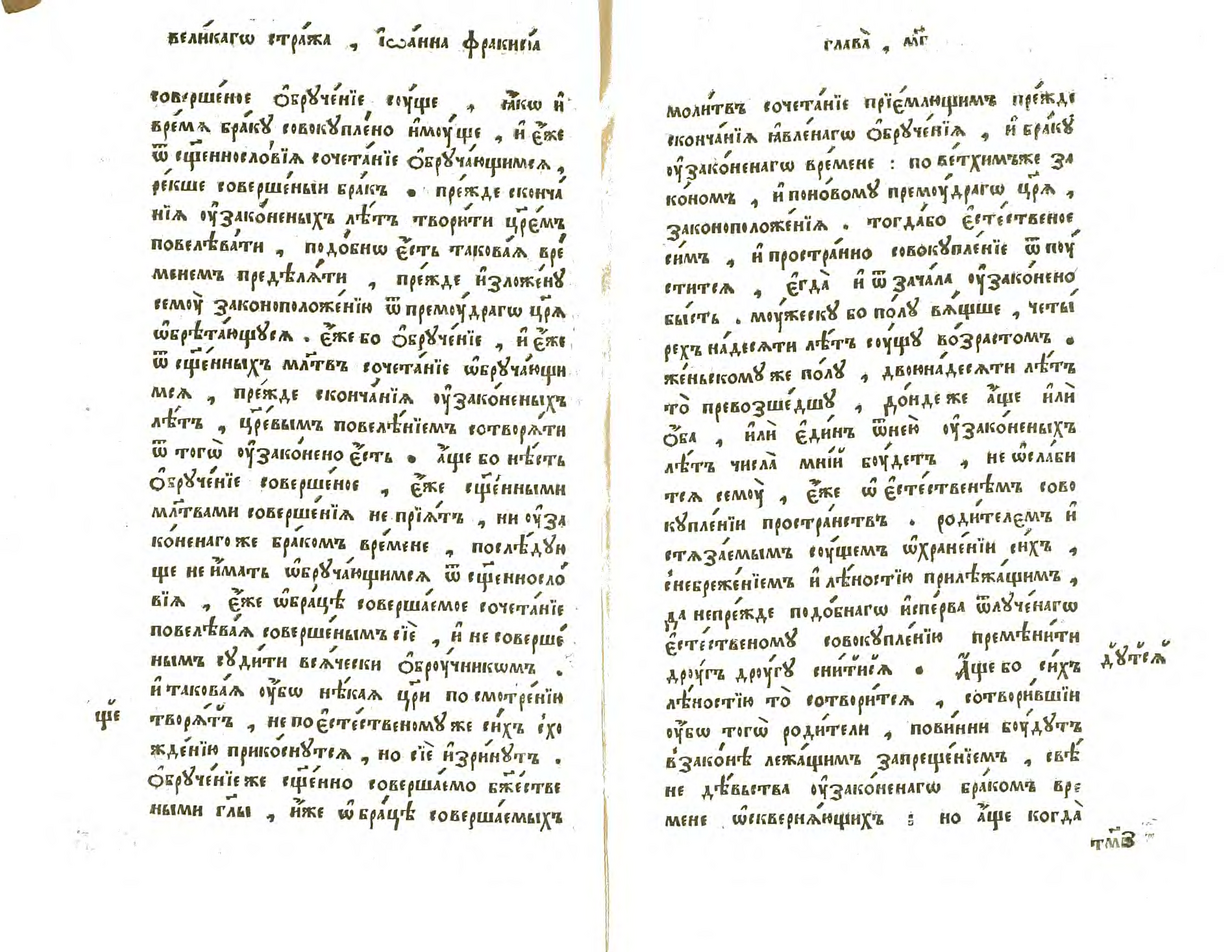 вели́кагѡ стра́жа , і҆ѡа́нна фракисі́а
соверше́ное ѻ҆брꙋче́нїе сꙋ́ще , ꙗ҆́кѡ и҆
вре́мѧ бра́кꙋ совокꙋпле́но и҆мꙋ́ще , и҆ є҆́же
ѿ сщ҃еннословїѧ сочета́нїе ѻ҆брꙋча́ющимсѧ ,
ре́кше соверше́ныи бра́къ . пре́жде сконча́
нїѧ оу҆зако́неныхъ лѣ́тъ твори́ти цр҃е́мъ
повелѣва́ти , подо́бнѡ є҆́сть такова́ѧ вре́
менемъ предѣлѧ́ти , пре́жде и҆зло́женꙋ
семоу̀ законоположе́нїю ѿ премоу́драгѡ цр҃ѧ̀
ѡ҆брѣта́ющꙋсѧ . є҆́же бо ѻ҆брꙋче́нїе , и҆ є҆́же
ѿ сщ҃е́нныхъ мл҃твъ сочета́нїе ѡ҆брꙋча́ющи
мсѧ , пре́жде сконча́нїѧ оу҆зако́неныхъ
лѣ́тъ , цр҃е́вымъ повелѣ́нїемъ сотворѧ́ти
ѿ тогѡ̀ оу҆зако́нено є҆́сть . а҆́ще бо нѣ́сть
ѻ҆брꙋче́нїе соверше́ное , є҆́же сщ҃е́нными
мл҃твами соверше́нїѧ не прїѧ́тъ , ни оу҆за
ко́ненаго же бра́комъ вре́мене , послѣ́дꙋю
ще не и҆́мать ѡ҆брꙋча́ющимсѧ ѿ сщ҃енносло́
вїѧ , є҆́же ѡ҆бра́цѣ соверша́емое сочета́нїе
повелѣва́ѧ соверше́нымъ сїѐ , и҆ не соверше́
нымъ сꙋди́ти всѧ́чески ѻ҆броу́чникѡмъ .
и҆ такова́ѧ оу҆́бѡ нѣ́каѧ цр҃и по смотре́нїю
творѧ́тъ , не по є҆сте́ственомꙋ же си́хъ схо
жде́нїю прико́снꙋтсѧ , но сїѐ и҆зри́нꙋтъ .
ѻ҆брꙋче́нїе же сщ҃е́нно соверша́емо бж҃е́стве
ными гл҃ы , и҆́же ѡ҆ бра́цѣ соверша́емыхъ
щ҃е
глава̀ , м҃г
моли́твъ сочета́нїе прїе́млющимъ пре́жде
сконча́нїѧ ꙗ҆вле́нагѡ ѻ҆брꙋче́нїѧ , и҆ бра́кꙋ
оу҆зако́ненагѡ вре́мене : по ве́тхимъже за
ко́номъ , и҆ поно́вомꙋ премоу́драгѡ цр҃ѧ̀ ,
законоположе́нїѧ . тогда́бо є҆сте́ственое
си́мъ , и҆ простра́нно совокꙋпле́нїе ѿпоу́
ститсѧ , є҆гда̀ и҆ ѿ зача́ла оу҆зако́нено
бы́сть . моу́жескꙋ бо по́лꙋ вѧ́щше , четы́
рехъ на́десѧти лѣ́тъ соу́щꙋ во́зрастомъ .
же́ньскомꙋ же по́лꙋ , двоюна́десѧти лѣ́тъ
то̀ превозше́дшꙋ , до́нде же а҆́ще и҆лѝ
ѻ҆́ба , и҆лѝ є҆ди́нъ ѿнею̀ оу҆зако́неныхъ
лѣ́тъ числа̀ мні́й боу́детъ , не ѡ҆сла́би
тсѧ семоу̀ , є҆́же ѡ҆ є҆сте́ственѣмъ сово
кꙋпле́нїи простра́нствъ . роди́телємъ и҆
стѧза́емымъ соу́щемъ ѡ҆хране́нїи си́хъ ,
снебреже́нїемъ и҆ лѣ́ностїю прилѣжа́щимъ ,
да непре́жде подо́бнагѡ и҆спе́рва ѿлꙋче́нагѡ
є҆сте́ственомꙋ совокꙋпле́нїю премѣни́ти
дрꙋ́гъ дрꙋ́гꙋ сни́тисѧ . а҆́ще бо си́хъ
дꙋ́тсѧ
лѣ́ностїю то̀ сотвори́тсѧ , сотвори́вшїи
оу҆́бѡ тогѡ̀ роди́тели , пови́нни боу́дꙋтъ
взако́нѣ лежа́щимъ запреще́нїемъ , свѣ́
не дѣ́вьства оу҆зако́ненагѡ бра́комъ вре́
мене ѡ҆сквернѧ́ющихъ : но а҆́ще когда̀
тм҃з